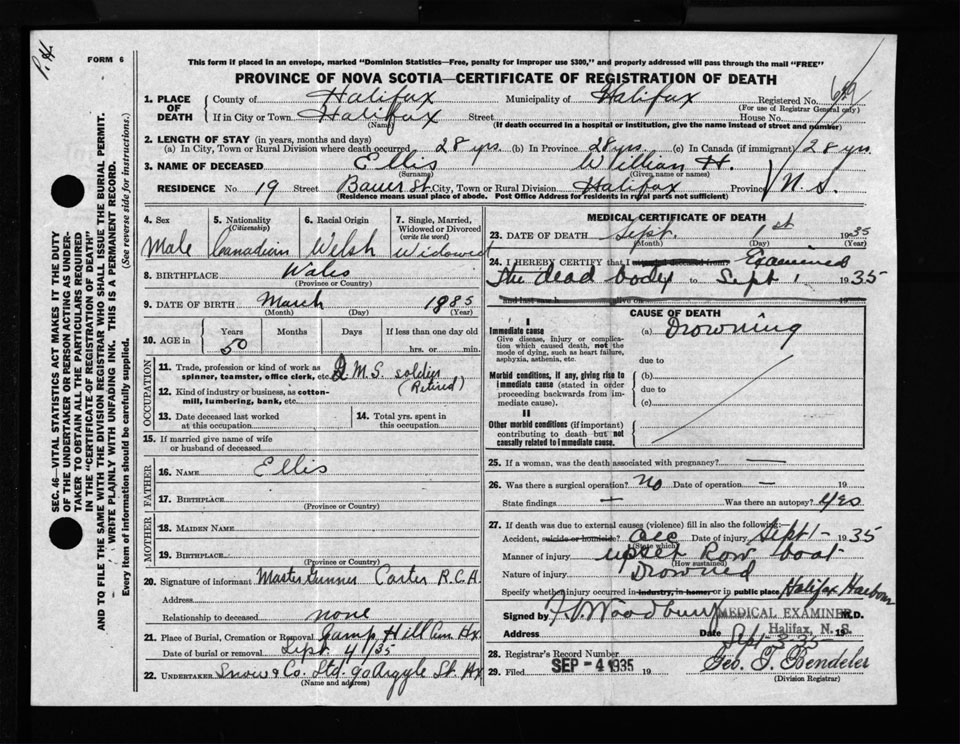 P. H.
FORM 6
This form if placed in an envelope, marked "Dominion Statistics—Free, penalty for improper use $300," and properly addressed will pass through the mail "FREE"
PROVINCE OF NOVA SCOTIA—CERTIFICATE OF REGISTRATION OF DEATH
SEC. 46—VITAL STATISTICS ACT MAKES IT THE DUTY
OF THE UNDERTAKER OR PERSON ACTING AS UNDER-
TAKER TO OBTAIN ALL THE PARTICULARS REQUIRED
IN THE "CERTIFICATE OF REGISTRATION OF DEATH"
AND TO FILE THE SAME WITH THE DIVISION REGISTRAR WHO SHALL ISSUE THE BURIAL PERMIT.
WRITE PLAINLY WITH UNFADING INK. THIS IS A PERMANENT RECORD.
Every item of information should be carefully supplied. (See reverse side for instructions.)
1. PLACE OF DEATH County of Halifax Municipality of Halifax Registered No.
(For use of Registrar General only)
If in City or Town Halifax Street House No.
(Name) (If death occurred in a hospital or institution, give the name instead of street and number)
2. LENGTH OF STAY (in years, months and days)
(a) In City, Town or Rural Division where death occurred 28 yrs. (b) In Province 28 yrs. (c) In Canada (if immigrant) 28 yrs.
3. NAME OF DECEASED Ellis William H.
(Surname) (Given name or names)
RESIDENCE No 19 Street Bauer St. City, Town or Rural Division Halifax Province N. S.
(Residence means usual place of abode. Post Office Address for residents in rural parts not sufficient)
4. Sex Male
5. Nationality (Citizenship) Canadian
6. Racial Origin Welsh
7. Single, Married, Widowed or Divorced (write the word) Widowed
8. BIRTHPLACE Wales
(Province or Country)
9. DATE OF BIRTH March 1885
(Month) (Day) (Year)
10. AGE in Years 50 Months Days If less than one day old
hrs. or min.
OCCUPATION
11. Trade, profession or kind of work as spinner, teamster, office clerk, etc. Q M.S. soldier
(Retired)
12. Kind of industry or business, as cotton-mill, lumbering, bank, etc.
13. Date deceased last worked at this occupation
14. Total yrs. spent in this occupation
15. If married give name of wife or husband of deceased
FATHER
16. NAME Ellis
17. BIRTHPLACE
(Province or Country)
MOTHER
18. MAIDEN NAME
19. BIRTHPLACE
(Province or Country)
20. Signature of informant Master Gunner Carter R.C.A.
Address
Relationship to deceased none
21. Place of Burial, Cremation or Removal Camp Hill Cem Hx.
Date of burial or removal Sept. 4/35
22. UNDERTAKER Snow & Co. Ltd. 90 Argyle St. Hx
(Name and address)
MEDICAL CERTIFICATE OF DEATH
23. DATE OF DEATH Sept. 1st 1935
(Month) (Day) (Year)
24. I HEREBY CERTIFY that I attended deceased from Examined
The dead body to Sept 1 1935
and last saw h alive on 19
CAUSE OF DEATH
I
Immediate cause
Give disease, injury or complication which caused death, not the mode of dying, such as heart failure, asphyxia, asthenia, etc.
(a) Drowning
due to
Morbid conditions, if any, giving rise to immediate cause (stated in order proceeding backwards from immediate cause).
(b)
due to
(c)
II
Other morbid conditions (if important) contributing to death but not causally related to immediate cause.
25. If a woman, was the death associated with pregnancy? —
26. Was there a surgical operation? no Date of operation — 19
State findings — Was there an autopsy? yes
27. If death was due to external causes (violence) fill in also the following:—
Accident, suicide or homicide? Acc Date of injury Sept 1 - 1935
(State which)
Manner of injury upset Row boat
(How sustained)
Nature of injury Drowned
Specify whether injury occurred in industry, in home, or in public place Halifax Harbour
Signed by F. V. Woodbury MEDICAL EXAMINER M.D.
Address Date Halifax, N. S.
Sept 3 35
28. Registrar's Record Number
29. Filed SEP - 4 1935 19 Geo. T. Bendeler
(Division Registrar)